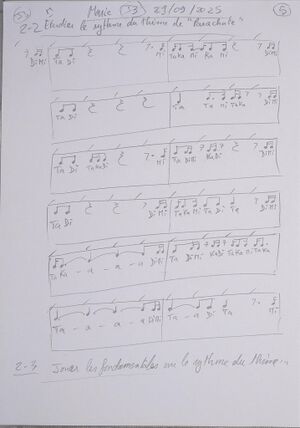 5 Marie 53 29/09/2025 5
2-2 Etudier le rythme du thème de "Parachute"
DiMi Ta Di Mi TaKa Mi Ka Mi DiMi
Ta Di Ta Ta Mi TaKa DiMi
Ta Di TaKaDi Mi Ta DiMi KaDi DiMi
Ta Di Di Mi TaKa Mi Ta Di Ta DiMi
Ta Ka - a - a - a DiMi Ta DiMi KaDi TaKa Mi TaKa
Ta - a - a - a DiMi Ta - a Di Ta Mi
2-3 Jouer les fondamentales sur le rythme du thème...